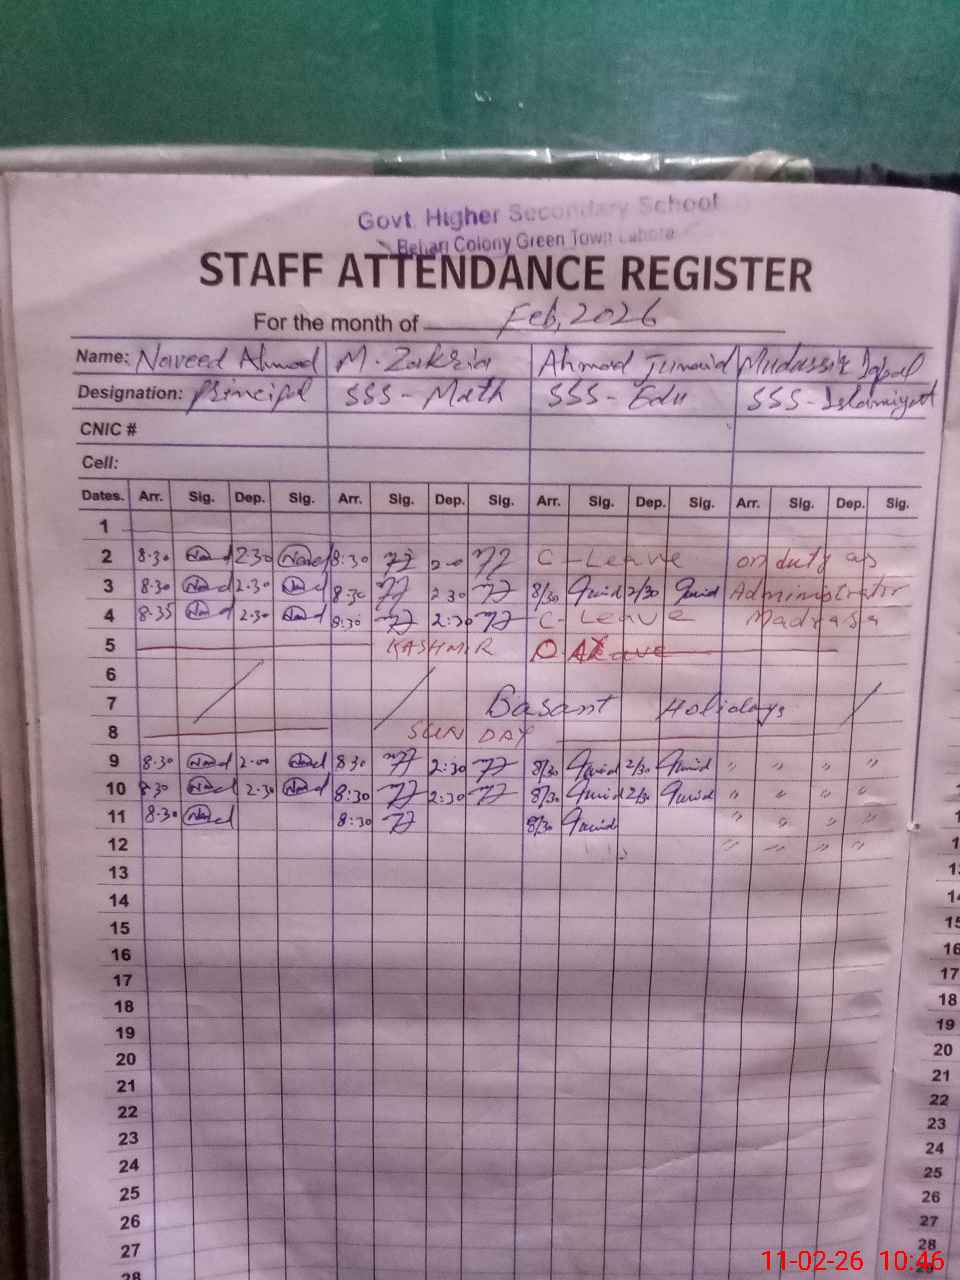 Govt. Higher Secondary School
Behari Colony Green Town Lahore
STAFF ATTENDANCE REGISTER
For the month of Feb, 2026
Name: Naveed Ahmad M. Zakria Ahmad Junaid Mudassir Iqbal
Designation: Principal SSS - Math SSS - Edu SSS - Islamiyat
CNIC #
Cell:
Dates. Arr. Sig. Dep. Sig. Arr. Sig. Dep. Sig. Arr. Sig. Dep. Sig. Arr. Sig. Dep. Sig.
1
2 8.30 2.30 8:30 2.00 C-Leave on duty as
3 8.30 2.30 8:30 2:30 8/30 2/30 Administrator
4 8.35 2.30 8:30 2:30 C-Leave Madrasa
5 KASHMIR
6
7 Basant Holidays
8 SUNDAY
9 8.30 2.00 8:30 2:30 8/30 2/30 " " " "
10 8.30 2.30 8:30 2:30 8/30 2/30 " " " "
11 8.30 8:30 8/30 " " " "
12 " " " "
13
14
15
16 16
17 17
18 18
19 19
20 20
21 21
22 22
23 23
24 24
25 25
26 26
27 27
28 28
11-02-26 10:46